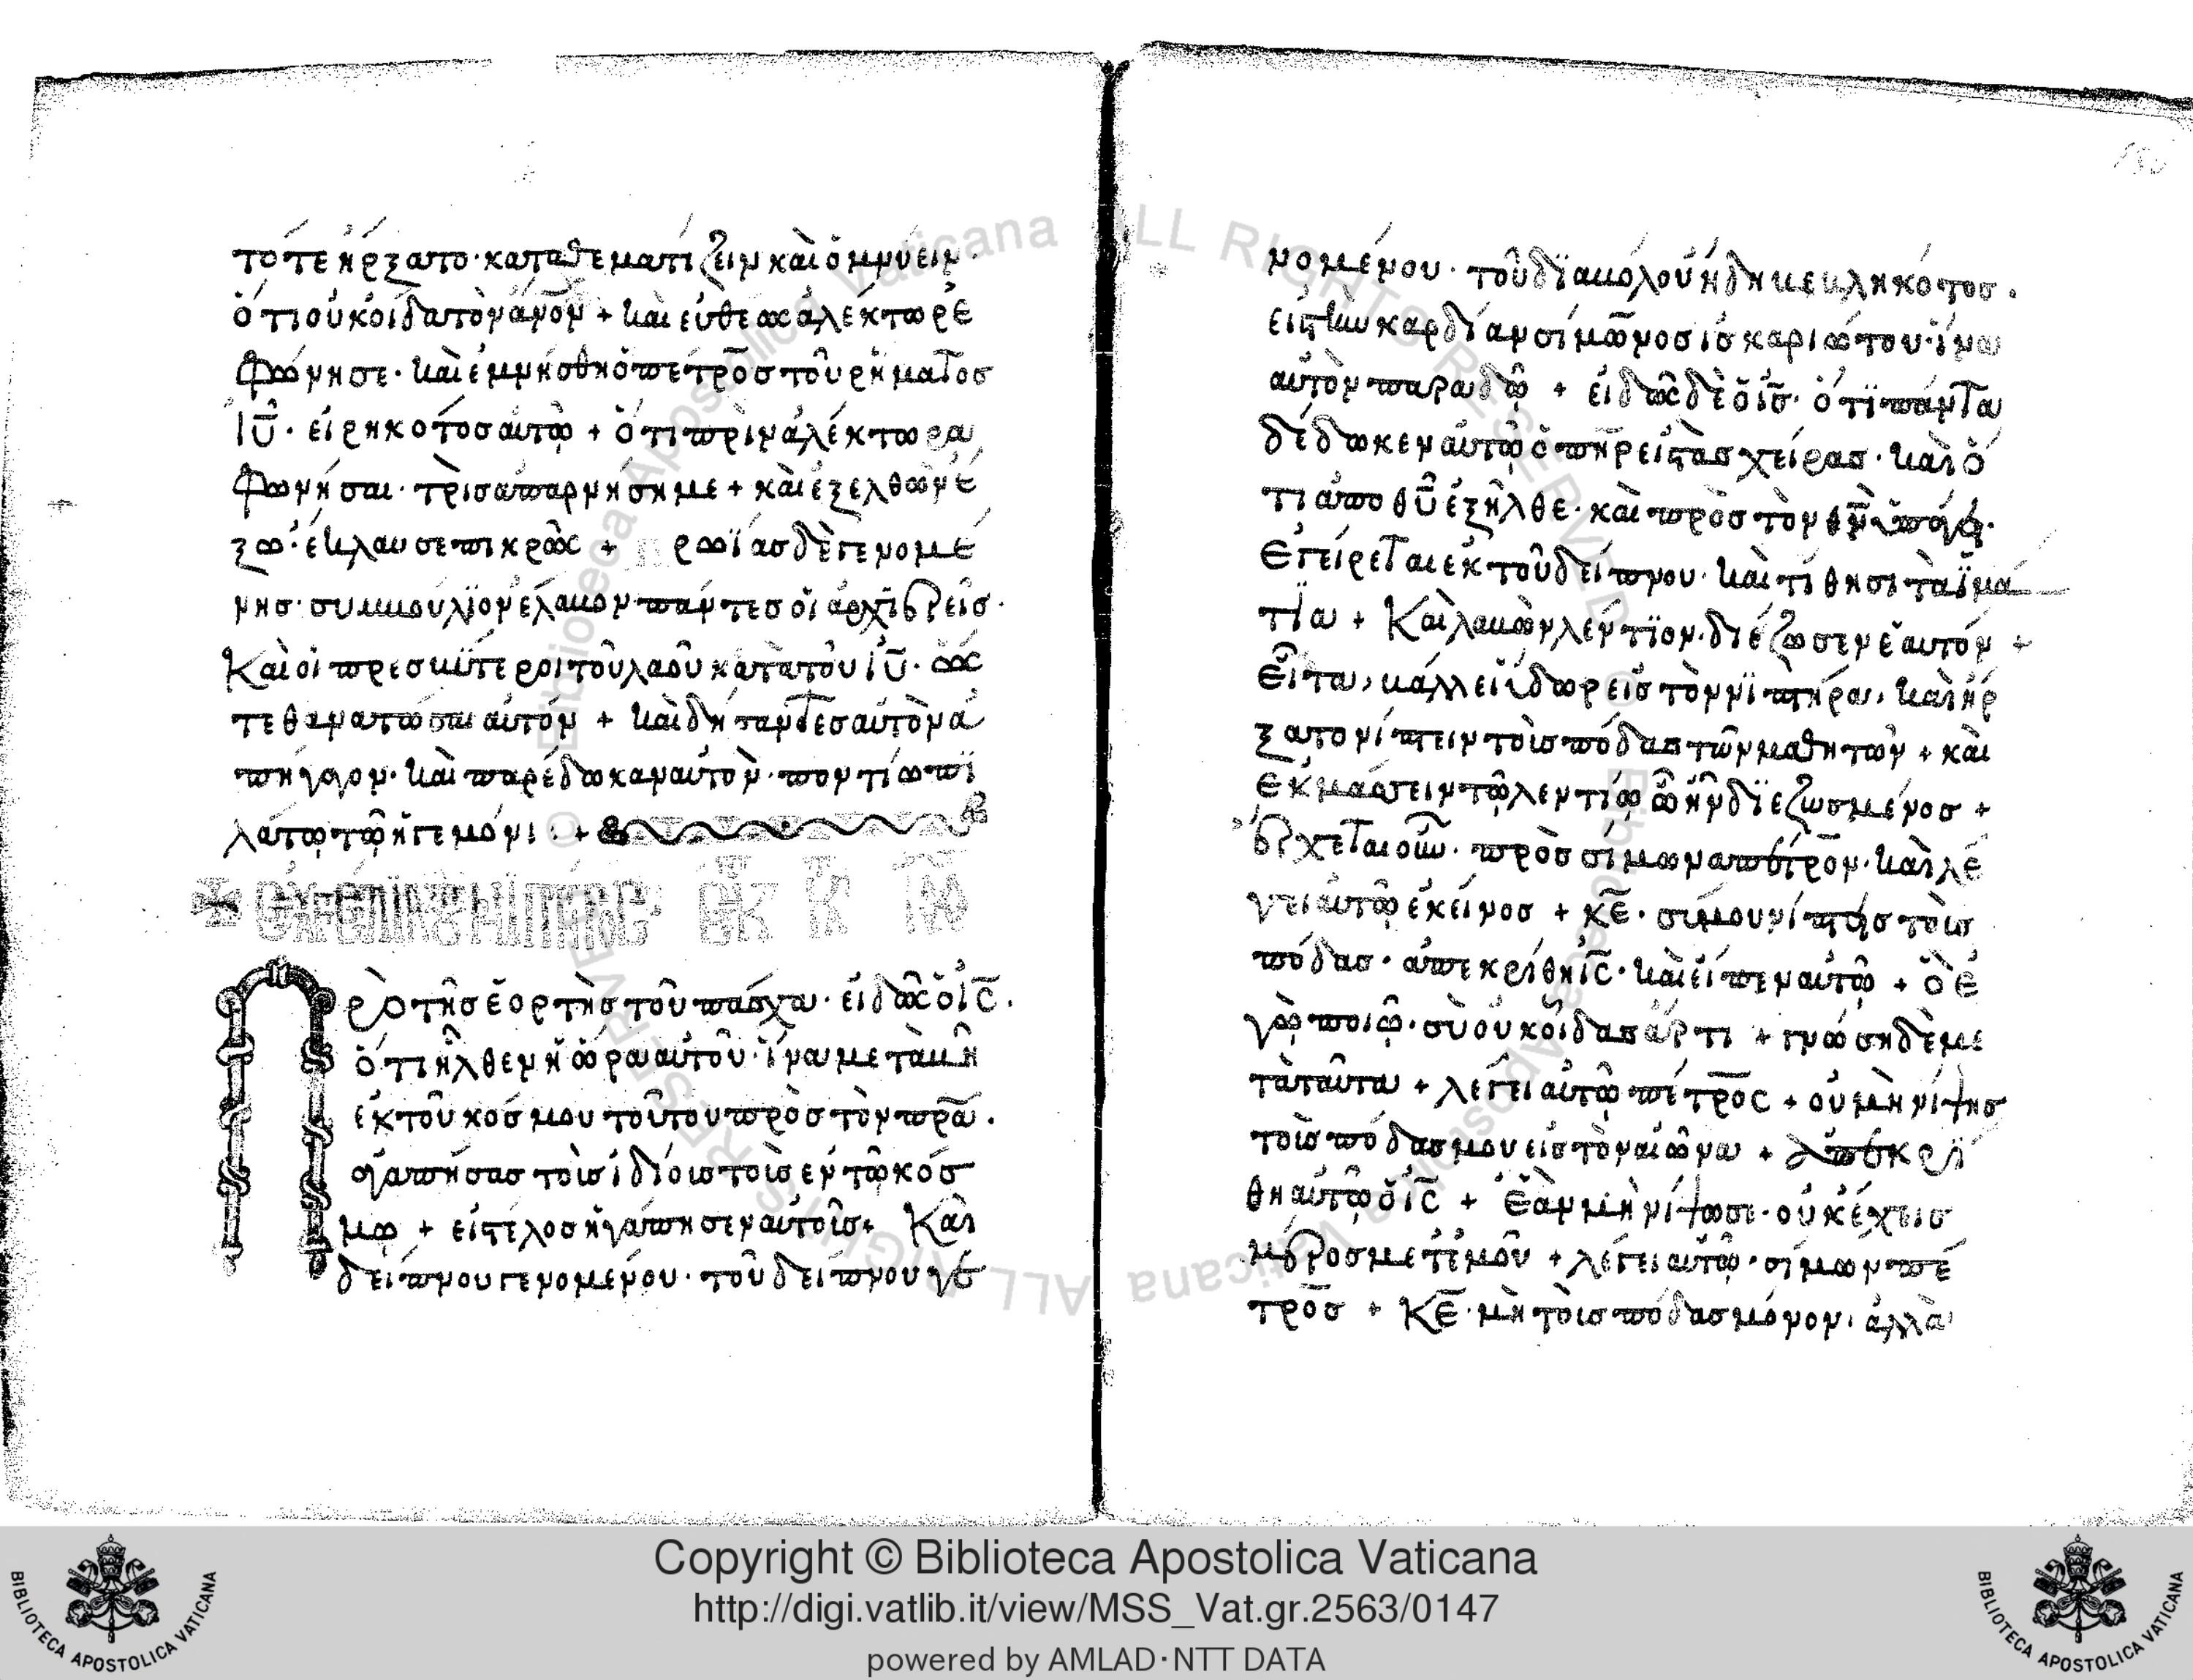 τότε ἤρξατο· καταθεματίζειν καὶ ὀμνύειν·
ὅτι οὐκ οἶδα τὸν ἄνον + καὶ εὐθέως ἀλέκτωρ ἐ
φώνησε· καὶ ἐμνήσθη ὁ πέτρος τοῦ ρήματος
ἰυ· εἰρηκότος αὐτῶ + ὅτι πρὶν ἀλέκτορα
φωνήσαι· τρὶς ἀπαρνήση με + καὶ ἐξελθὼν ἔ
ξω· ἔκλαυσε πικρῶς + πρωΐας δὲ γενομέ
νης· συμβούλϊον ἔλαβον πάντες οἱ ἀρχϊερεῖς·
Καὶ οἱ πρεσβϋτεροι τοῦ λαοῦ κατὰ τοῦ ἰυ· ὡς
τε θανατῶσαι αὐτόν + καὶ δήσαντες αὐτὸν ἀ
πήγαγον· καὶ παρέδωκαν αὐτὸν· ποντίω πϊ
λάτω τῶ ἡγεμόνι : +
Πρὸ τῆς ἑορτῆς τοῦ πάσχα· εἰδὼς ὁ ις·
ὅτι ἦλθεν ἡ ὥρα αὐτοῦ· ἵνα μεταβῆ
ἐκ τοῦ κόσμου τοῦτου πρὸς τὸν πρα·
ἀγαπήσας τοὺς ἰδίους τοὺς ἐν τῶ κόσ
μω + εἰς τέλος ἠγάπησεν αὐτοὺς + Καὶ
δείπνου γενομένου· τοῦ δείπνου γε
νομένου· τοῦ δϊαβόλου ἤδη βεβληκότος·
εἰς τὴν καρδίαν σίμωνος ἰσκαριώτου· ἵνα
αὐτὸν παραδῶ + εἰδὼς δὲ ὁ ις· ὅτϊ πάντα
δέδωκεν αὐτῶ ὁ πηρ εἰς τὰς χείρας· καὶ ὅ
τι ἀπο θυ ἐξῆλθε· καὶ πρὸς τὸν θν ὑπάγει·
Ἐγείρεται ἐκ τοῦ δείπνου· καὶ τίθησι τὰ ἱμά
τϊα + Καὶ λαβὼν λέντϊον· διέζωσεν ἑαυτόν +
Εἶτα, βάλλει ὕδωρ εἰς τὸν νϊπτῆρα, καὶ ἤρ
ξατο νίπτειν τοὺς πόδας τῶν μαθητῶν + καὶ
ἐκμάσσειν τῶ λεντίω ὧ ἦν δϊεζωσμένος +
ἔρχεται οὖν· πρὸς σίμωνα πέτρον· καὶ λέ
γει αὐτῶ ἐκείνος + κε· σύ μου νίπτης τοὺς
πόδας· ἀπεκρίθη ις· καὶ εἶπεν αὐτῶ + ὃ ἐ
γὼ ποιῶ· σὺ οὐκ οἶδας ἄρτι + γνώση δὲ με
τὰ ταῦτα + λέγει αὐτῶ πέτρος + οὐ μὴ νίψης
τοὺς πόδας μου εἰς τὸν αἰῶνα + ἀπεκρί
θη αὐτῶ ὁ ις + Ἐὰν μὴ νίψω σε· οὐκ ἔχεις
μέρος μετ' ἐμοῦ + λέγει αὐτῶ· σίμων πέ
τρος + Κε· μὴ τοὺς πόδας μόνον· ἀλλὰ
Copyright © Biblioteca Apostolica Vaticana
http://digi.vatlib.it/view/MSS_Vat.gr.2563/0147
powered by AMLAD·NTT DATA
BIBLIOTECA APOSTOLICA VATICANA
BIBLIOTECA APOSTOLICA VATICANA